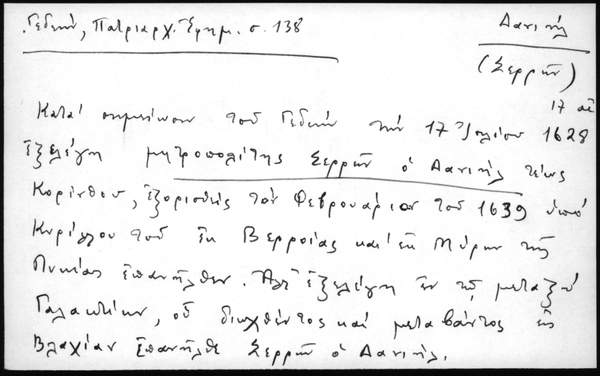 Γεδεών, Πατριαρχ. Ἐφημ. σ. 138
Δανιήλ
(Σερρῶν)
17 αἰ
Κατά σημείωσιν τοῦ Γεδεών τήν 17 Ἰουλίου 1628
ἐξελέγη μητροπολίτης Σερρῶν ὁ Δανιήλ τέως
Κορίνθου, ἐξορισθείς τόν Φεβρουάριον τοῦ 1639 ὑπό
Κυρίλλου τοῦ ἐκ Βερροίας καί ἐκ Μύρων τῆς
Λυκίας ἐπανῆλθεν. Ἀλλ' ἐξελέγη ἐν τῷ μεταξύ
Γαλακτίων, οὗ διωχθέντος καί μεταβάντος εἰς
Βλαχίαν ἐπανῆλθε Σερρῶν ὁ Δανιήλ.